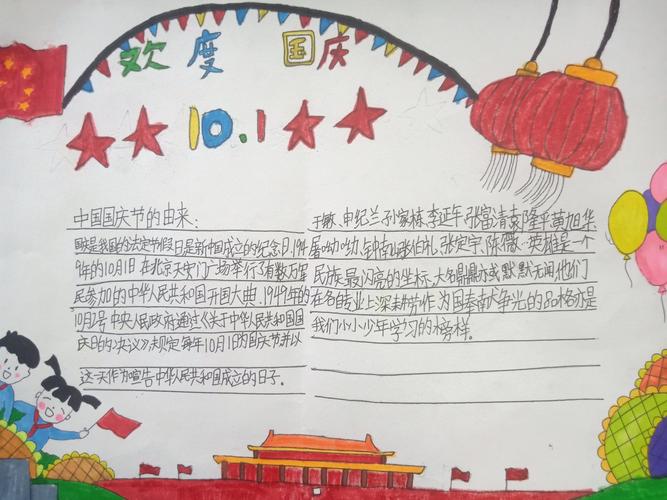 欢度国庆
10.1
中国国庆节的由来:
国庆是我国的法定节假日是新中国成立的纪念日.194
9年的10月1日在北京天安门广场举行了有数万军
民参加的中华人民共和国开国大典.1949年的
10月2号中央人民政府通过《关于中华人民共和国国
庆日的决议》规定每年10月1日为国庆节并以
这一天作为宣告中华人民共和国成立的日子。
于敏、申纪兰、孙家栋、李延年、张富清、袁隆平、黄旭华
屠呦呦、钟南山、张伯礼、张定宇、陈薇、英雄是一个
民族最闪亮的坐标,大名鼎鼎亦或默默无闻他们
在各自专业上深耕劳作为国奉南大争光的品格亦是
我们小小少年学习的榜样。